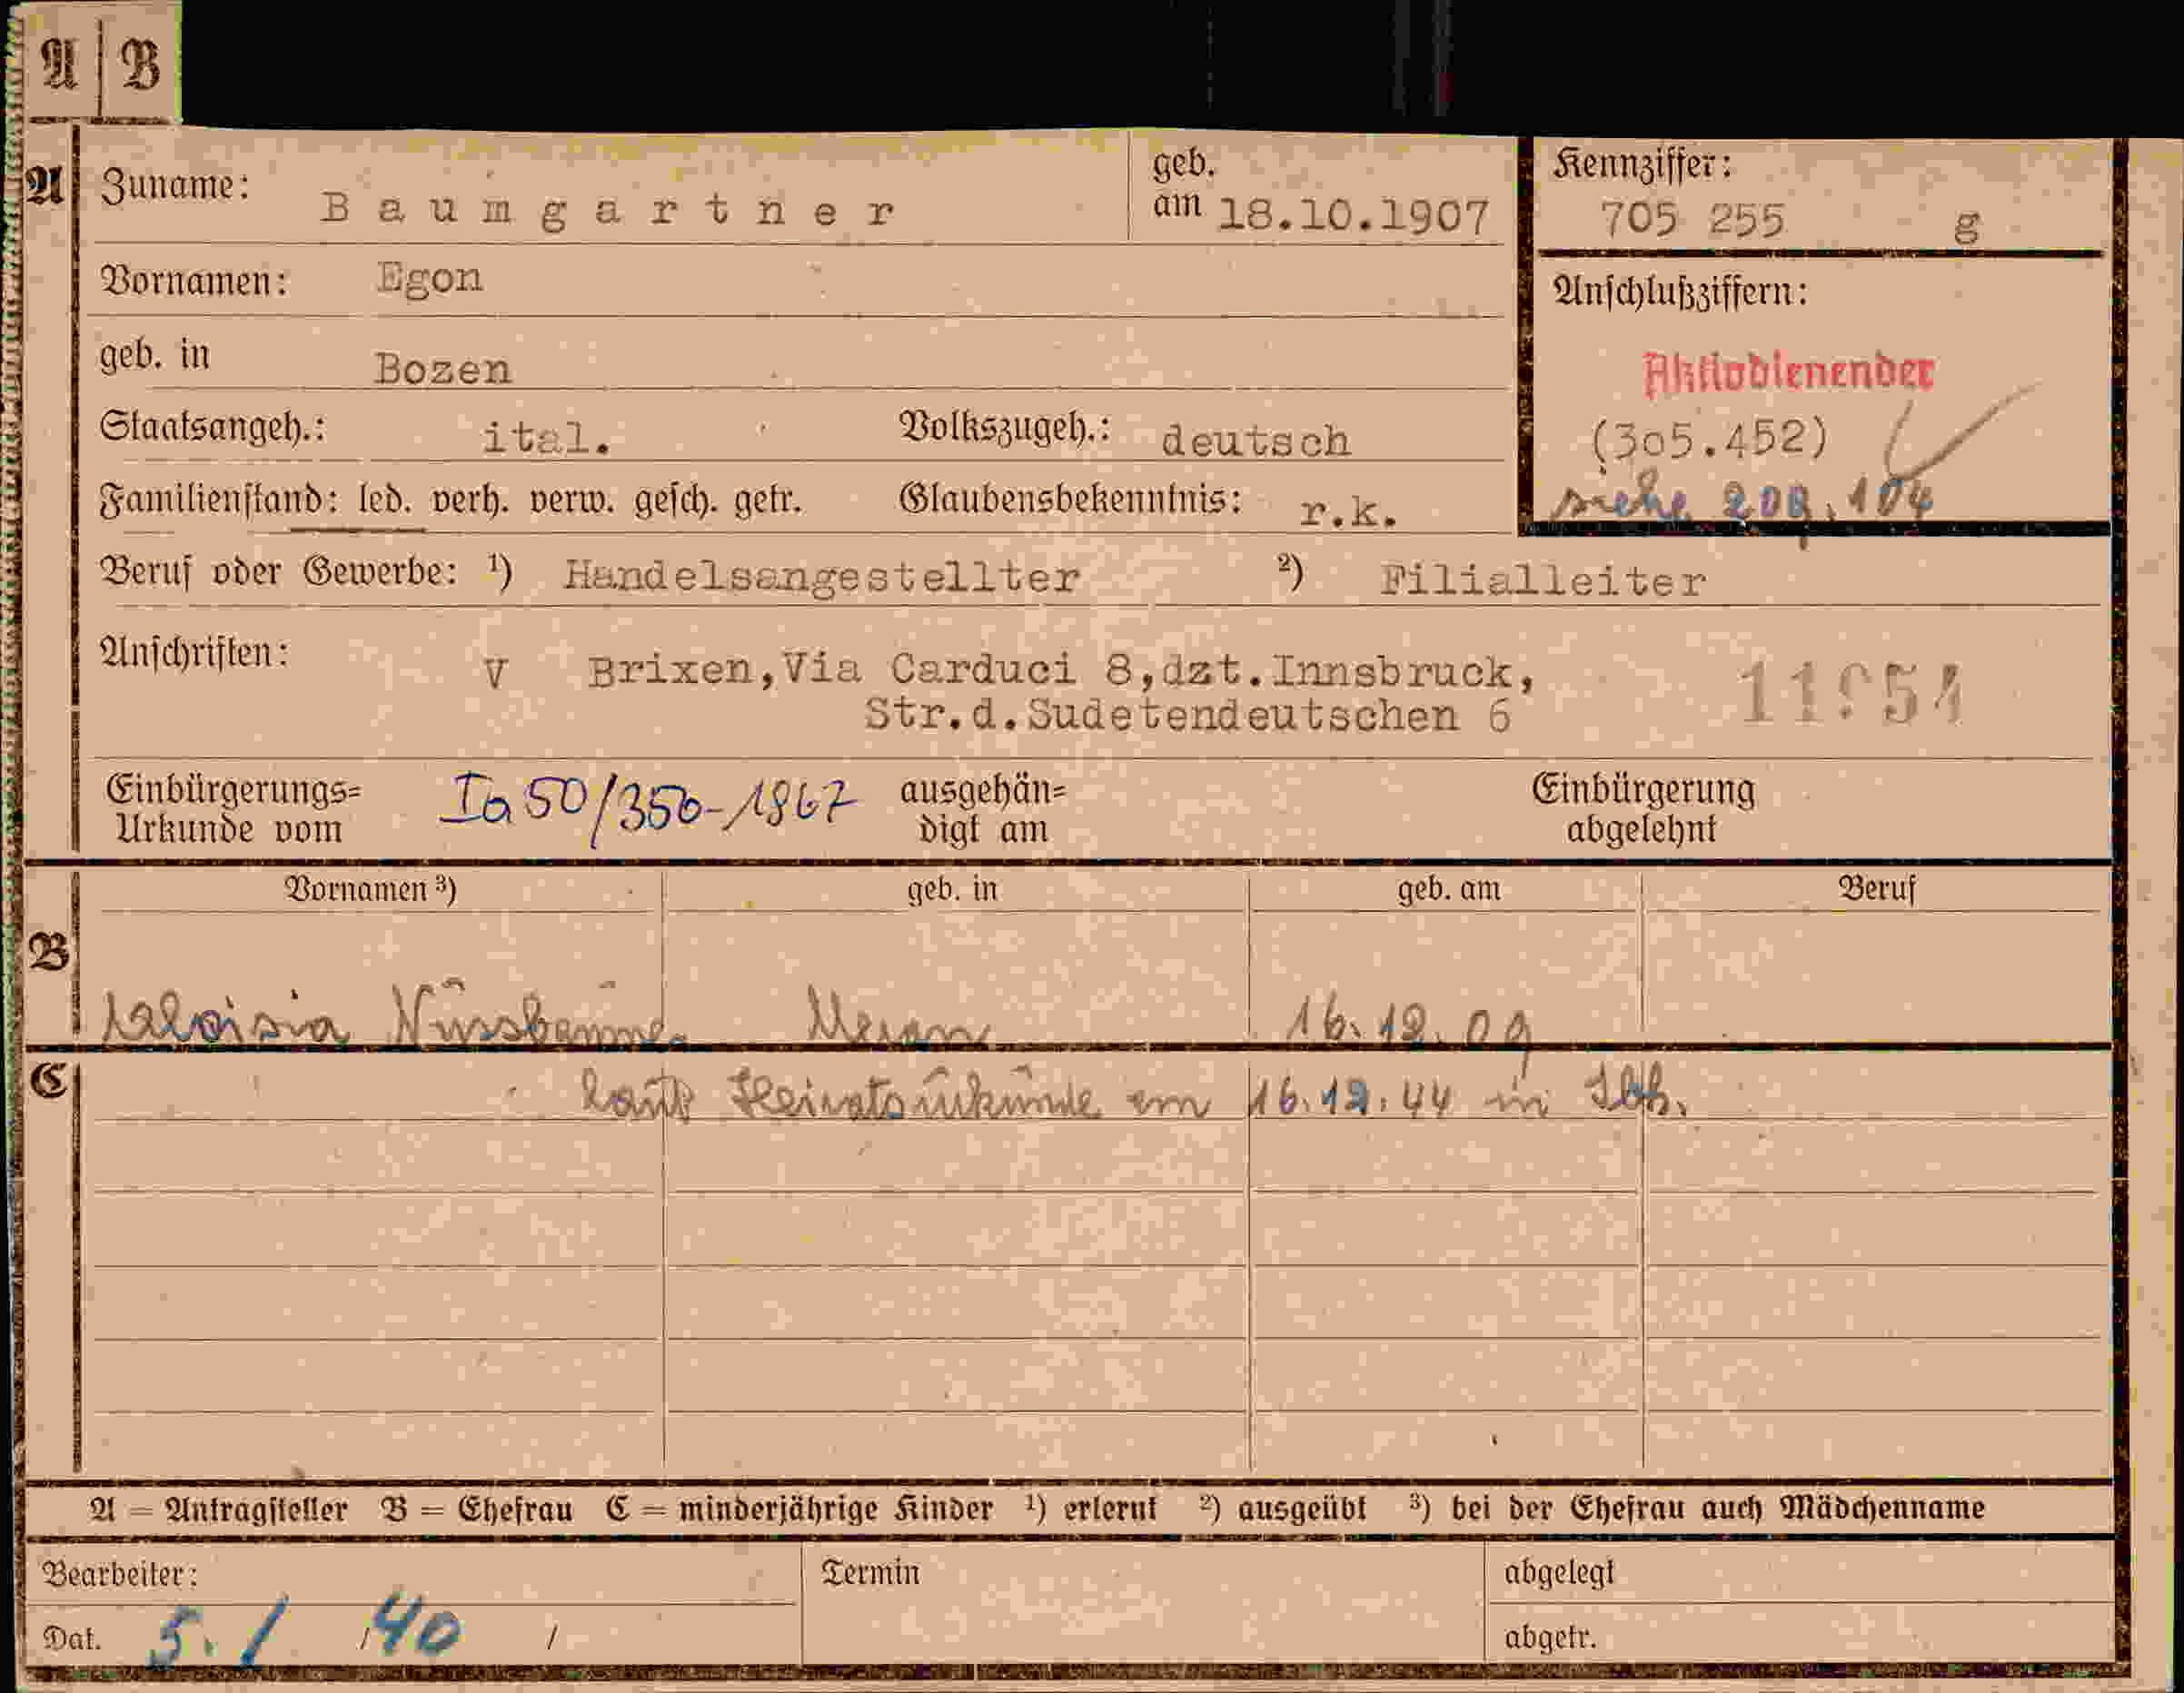 A | B
A Zuname: Baumgartner geb. am 18.10.1907
Kennziffer: 705 255 g
Vornamen: Egon
Anschlußziffern:
geb. in Bozen
Aktivdienender
Staatsangeh.: ital. Volkszugeh.: deutsch
(305.452)
Familienstand: led. verh. verw. gesch. getr. Glaubensbekenntnis: r.k.
siehe 209.104
Beruf oder Gewerbe: 1) Handelsangestellter 2) Filialleiter
Anschriften: V Brixen,Via Carduci 8,dzt.Innsbruck,
Str.d.Sudetendeutschen 6
Einbürgerungs=
Urkunde vom Ia 50/350-1967 ausgehän=
digt am
Einbürgerung
abgelehnt
Vornamen 3) geb. in geb. am Beruf
B Aloisia Meran 16.12.09
C laut Heiratsurkunde am 16.12.44 in Ibk.
A = Antragsteller B = Ehefrau C = minderjährige Kinder 1) erlernt 2) ausgeübt 3) bei der Ehefrau auch Mädchenname
Bearbeiter: Termin abgelegt
Dat. 5. / 1 / 40 / abgetr.